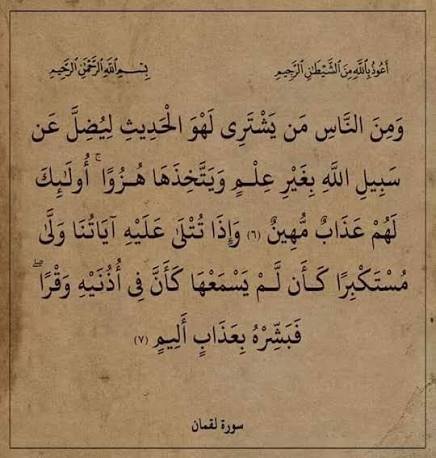 أعوذ بالله من الشيطان الرجيم
بسم الله الرحمن الرحيم
وَمِنَ النَّاسِ مَن يَشْتَرِى لَهْوَ الْحَدِيثِ لِيُضِلَّ عَن
سَبِيلِ اللَّهِ بِغَيْرِ عِلْمٍ وَيَتَّخِذَهَا هُزُوًا ۚ أُولَـٰئِكَ
لَهُمْ عَذَابٌ مُّهِينٌ (٦) وَإِذَا تُتْلَىٰ عَلَيْهِ آيَاتُنَا وَلَّىٰ
مُسْتَكْبِرًا كَأَن لَّمْ يَسْمَعْهَا كَأَنَّ فِى أُذُنَيْهِ وَقْرًا ۖ
فَبَشِّرْهُ بِعَذَابٍ أَلِيمٍ (٧)
سورة لقمان